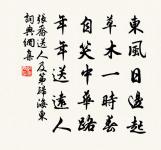 東風日邊起
草木一時春
自笑中華路
年年送遠人
張喬送人及第歸海東
詞典網集